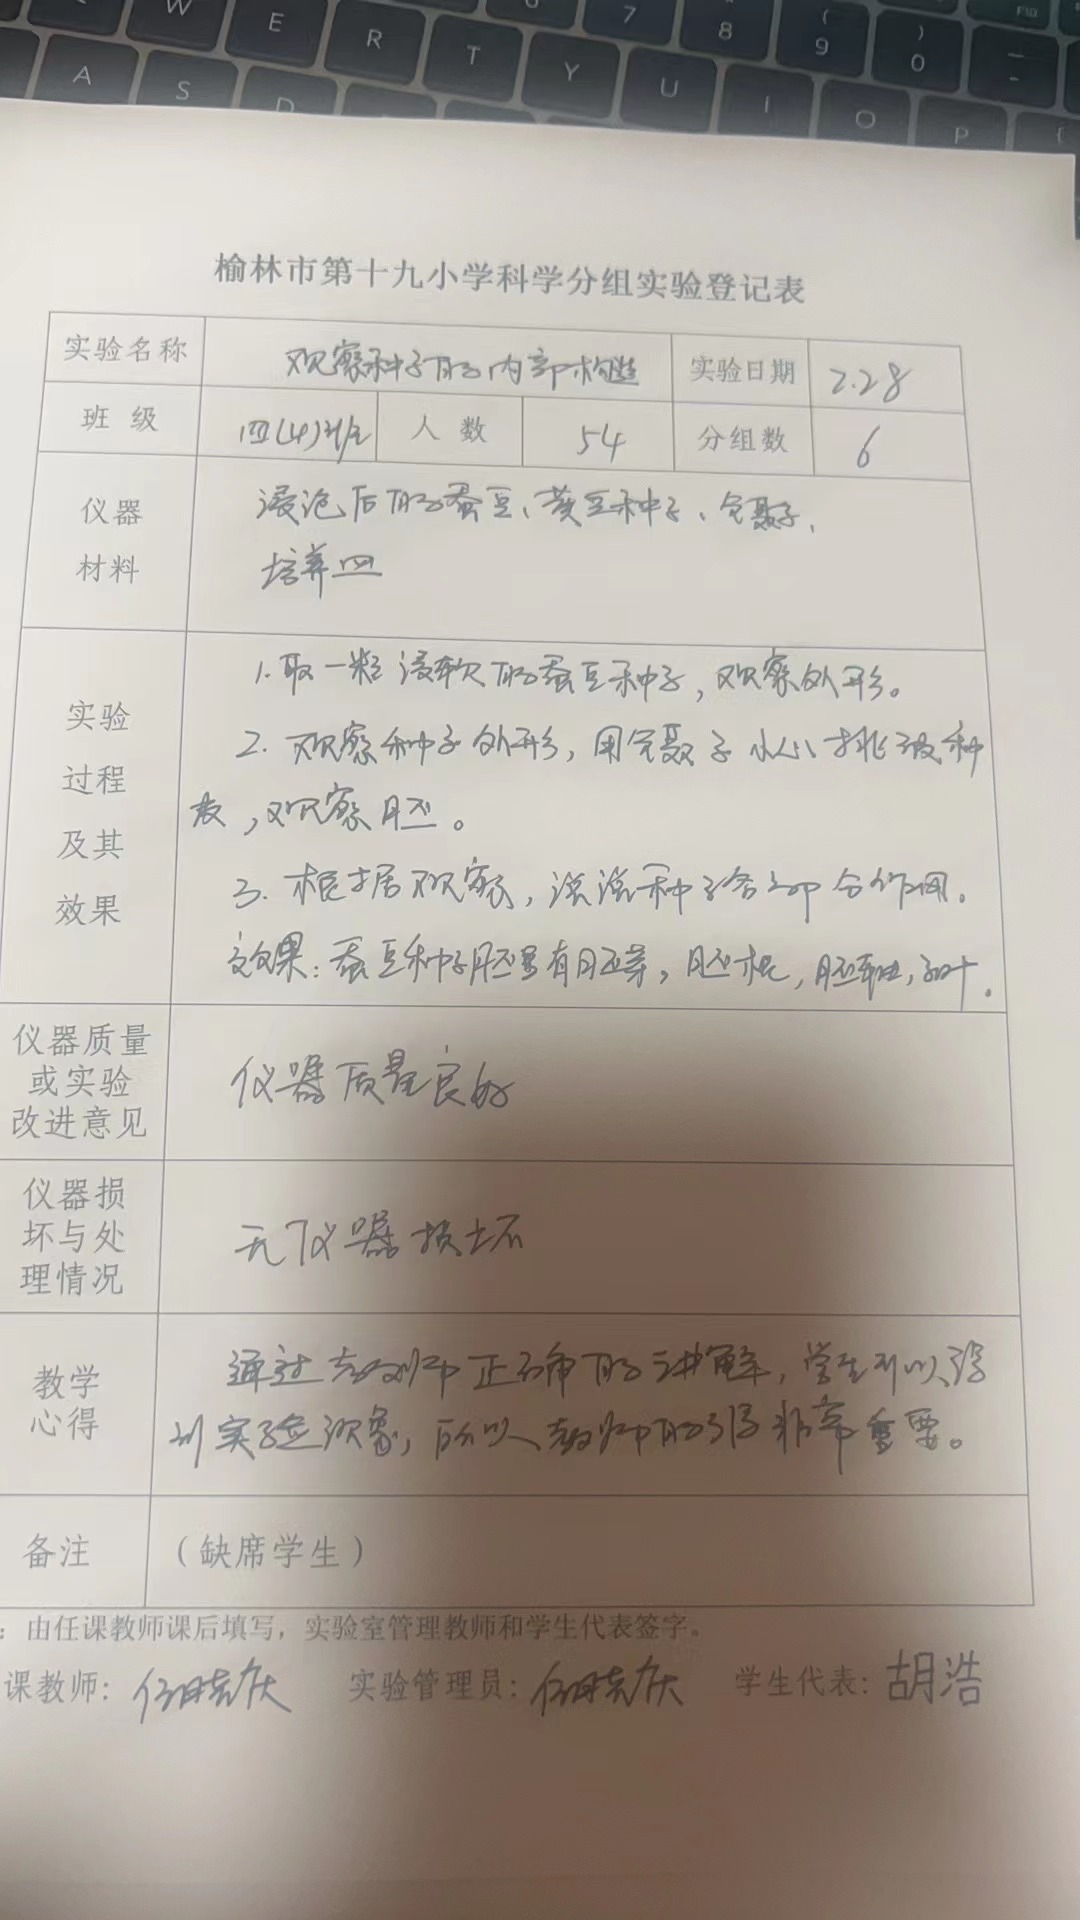 W E R T Y 7 8 9 0 F10
A S D U I O P
榆林市第十九小学科学分组实验登记表
实验名称 观察种子的内部构造 实验日期 2.28
班 级 四(4)班 人 数 54 分组数 6
仪器 浸泡后的蚕豆、黄豆种子、镊子、
材料 培养皿
1.取一粒浸软的蚕豆种子,观察外形。
实验 2. 观察种子外形,用镊子小心挑破种
过程 皮,观察胚。
及其 3. 根据观察,说说种子各部分作用。
效果 效果:蚕豆种子胚里有胚芽,胚根,胚轴,子叶.
仪器质量
或实验 仪器质量良好
改进意见
仪器损
坏与处 无仪器损坏
理情况
教学 通过老师正确的讲解,学生可以得
心得 到实验现象,所以老师的引导非常重要。
备注 (缺席学生)
:由任课教师课后填写,实验室管理教师和学生代表签字。
课教师: 实验管理员: 学生代表:胡浩